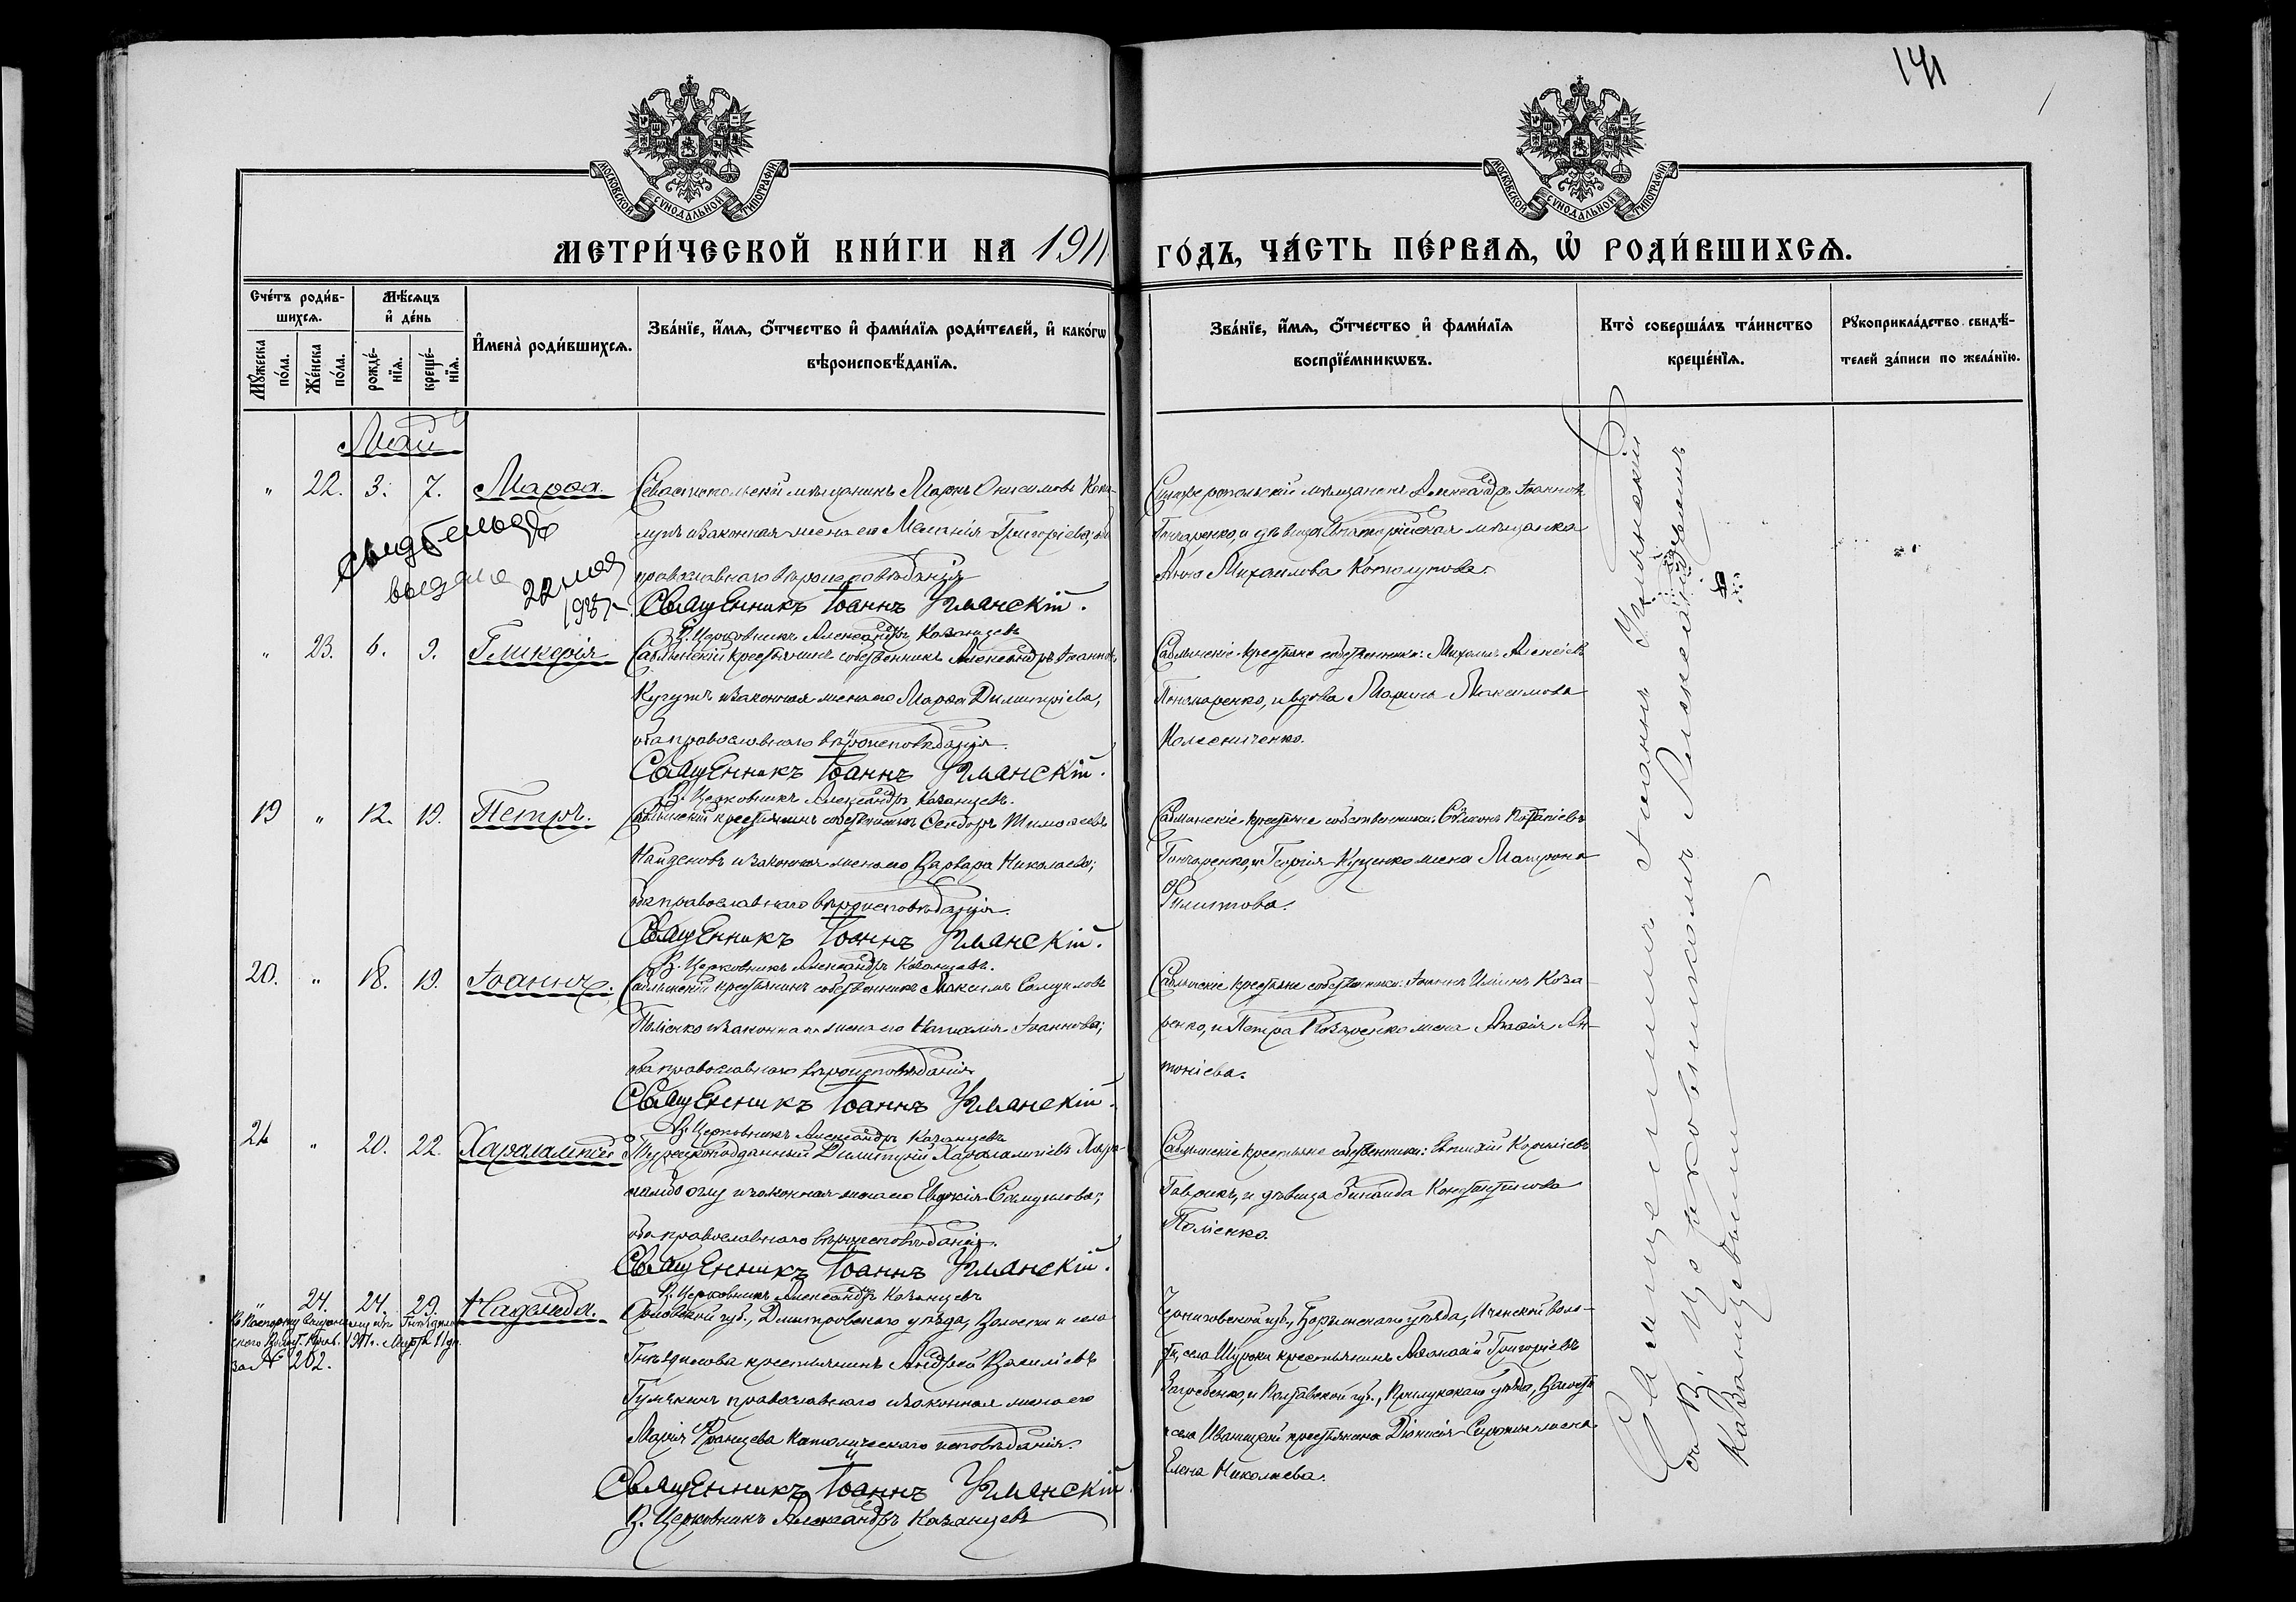 141
МОСКОВСКОЙ СѴНОДАЛЬНОЙ ТИПОГРАФІИ
МОСКОВСКОЙ СѴНОДАЛЬНОЙ ТИПОГРАФІИ
МЕТРИ́ЧЕСКОЙ КНИ́ГИ НА 1911
ГО́ДЪ, ЧА́СТЬ ПЕ́РВАѦ, Ѡ҆ РОДИ́ВШИХСѦ.
Сче́тъ роди́в-
шихсѧ.
Мꙋ́жеска по́ла.
Же́нска по́ла.
Мѣ́сѧцъ
и҆ де́нь
рожде́-
нїѧ.
креще́-
нїѧ.
И҆мена̀ роди́вшихсѧ.
Зва́нїе, и҆́мѧ, ѻ҆́тчество и҆ фами́лїѧ роди́телей, и҆ како́гѡ
вѣроисповѣ́данїѧ.
Зва́нїе, и҆́мѧ, ѻ҆́тчество и҆ фами́лїѧ
воспрїе́мникѡвъ.
Кто̀ соверша́лъ та́инство
креще́нїѧ.
Рꙋкоприкла́дство свидѣ́-
телей за́писи по жела́нїю.
Май
" 22. 3. 7. Марѳа.
Севастопольскій мѣщанинъ Маркъ Онисимовъ
и законная жена его Меланія Григоріева, оба
православнаго вѣроисповѣданія
Священникъ Іоаннъ Уманскій.
В. Церковникъ Александръ Казанцевъ
Симферопольскій мѣщанинъ Александръ Іоанновъ
Гончаренко, и дѣвица Евпаторійская мѣщанка
Анна Михаилова Котолупова.
свидѣтельство
выдано 22 мая
1937 г.
" 23. 6. 9. Гликерія
Саблынскій крестьянинъ собственникъ Александръ Іоанновъ
Кугутъ и законная жена его Марѳа Димитріева,
оба православнаго вѣроисповѣданія.
Священникъ Іоаннъ Уманскій.
В. Церковникъ Александръ Казанцевъ.
Саблынскіе крестьяне собственники: Михаилъ Алексіевъ
Пономаренко, и вдова Марина Максимова
Колесниченко.
19 " 12. 19. Петръ.
Саблынскій крестьянинъ собственникъ Ѳеодоръ Тимоѳеевъ
Найденовъ и законная жена его Варвара Николаева;
оба православнаго вѣроисповѣданія.
Священникъ Іоаннъ Уманскій.
В. Церковникъ Александръ Казанцевъ.
Саблынскіе крестьяне собственники: Сѵмеонъ Потапіевъ
Гончаренко, и Георгія Куценко жена Матрона
Филиппова.
20. " 18. 19. Іоаннъ.
Саблынскій крестьянинъ собственникъ Максимъ Самуиловъ
Поліенко и законная жена его Наталія Іоаннова;
оба православнаго вѣроисповѣданія
Священникъ Іоаннъ Уманскій.
В. Церковникъ Александръ Казанцевъ
Саблынскіе крестьяне собственники: Іоаннъ Ильинъ Коза-
ренко, и Петра Козаренко жена Агаѳія Ан-
тоніева.
21 " 20. 22. Харалампій
Турецкоподданный Димитрій Харалампіевъ
оглу и законная жена его Евдокія Самуилова;
оба православнаго вѣроисповѣданія.
Священникъ Іоаннъ Уманскій.
В. Церковникъ Александръ Казанцевъ
Саблынскіе крестьяне собственники: Евтихій Корниліевъ
Гаврикъ, и дѣвица Зинаида Константинова
Поліенко.
" 24. 24. 29. Надежда.
за № 202.
Орловской губ., Дмитровскаго уѣзда, Волости и села
Гнѣздилова крестьянинъ Андрей Василіевъ
Гулякинъ православнаго и законная жена его
Марія Францева Католическаго исповѣданія.
Священникъ Іоаннъ Уманскій
В. Церковникъ Александръ Казанцевъ
Черниговской губ., Борзенскаго уѣзда, Иченской воло-
сти, села крестьянинъ Аѳанасій Григоріевъ
и Полтавской губ., Прилукскаго уѣзда, Волости
и села Иваницкой крестьянина Діонисія жена
Елена Николаева.
Священникъ Іоаннъ Уманскій
съ В. церковникомъ Александромъ
Казанцевымъ